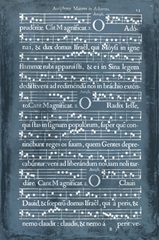 Antiphonæ Maiores in Aduentu.
prudentiæ. Cât Magnificat. O Ado-
nai, & dux domus Israël, qui Moysi in igne
flammæ rubi apparuisti, & ei in Sina legem
dedisti veni ad redimendū nos in brachio exten-
to. Cant. Magnificat. O Radix Iesse,
qui stas in signum populorum, super quē con-
tinebunt reges os suum, quem Gentes depre-
cabuntur: veni ad liberandum nos, iam noli tar-
dare. Cant. Magnificat. O Clauis
Dauid, & sceptrum domus Israël, qui aperis, &
nemo claudit: claudis, & nemo aperit: ve-